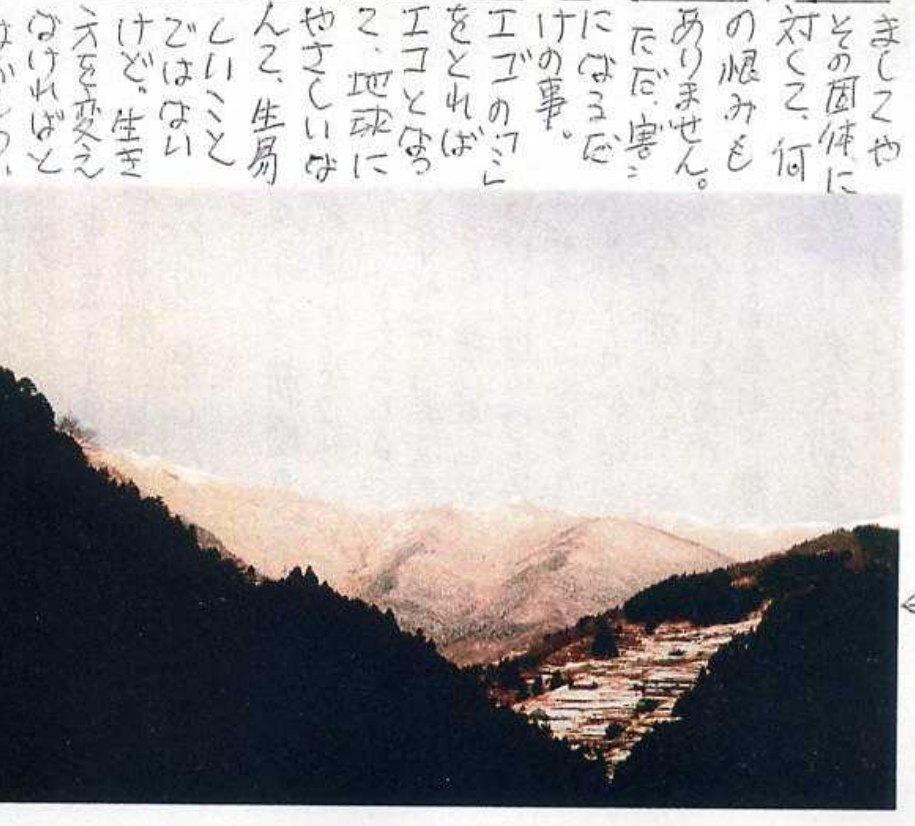 ましてや
その固体に
対して、何
の恨みも
ありません。
ただ、害
になるだ
けの事。
エゴの「゛」
をとれば
エコとなっ
て、地球に
やさしいな
んて、生易
しいこと
ではない
けど。生き
方を変え
なければと